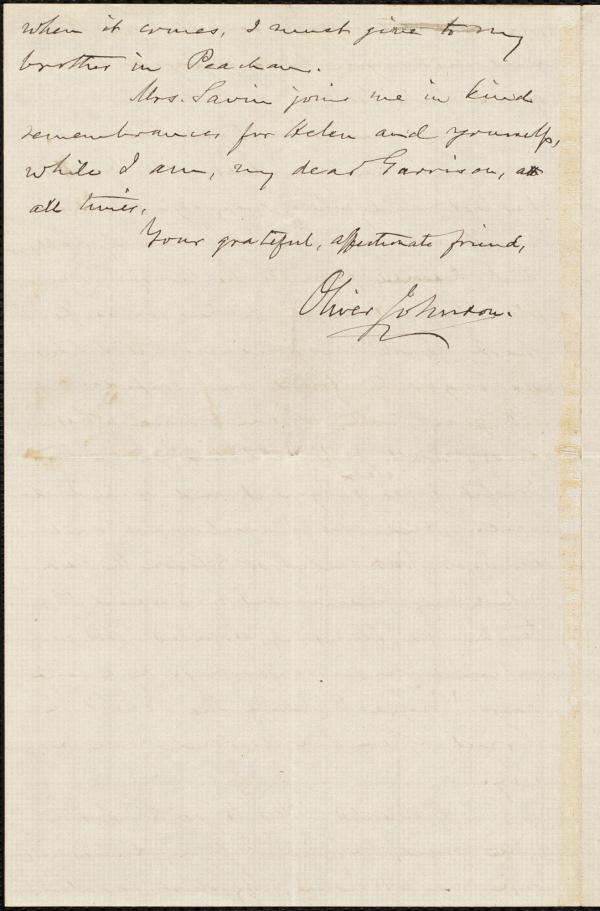 when it comes, I must give to my
brother in Peacham.
Mrs. Savin joins me in kind
remembrances for Helen and yourself,
while I am, my dear Garrison, at
all times,
Your grateful, affectionate friend,
Oliver Johnson.